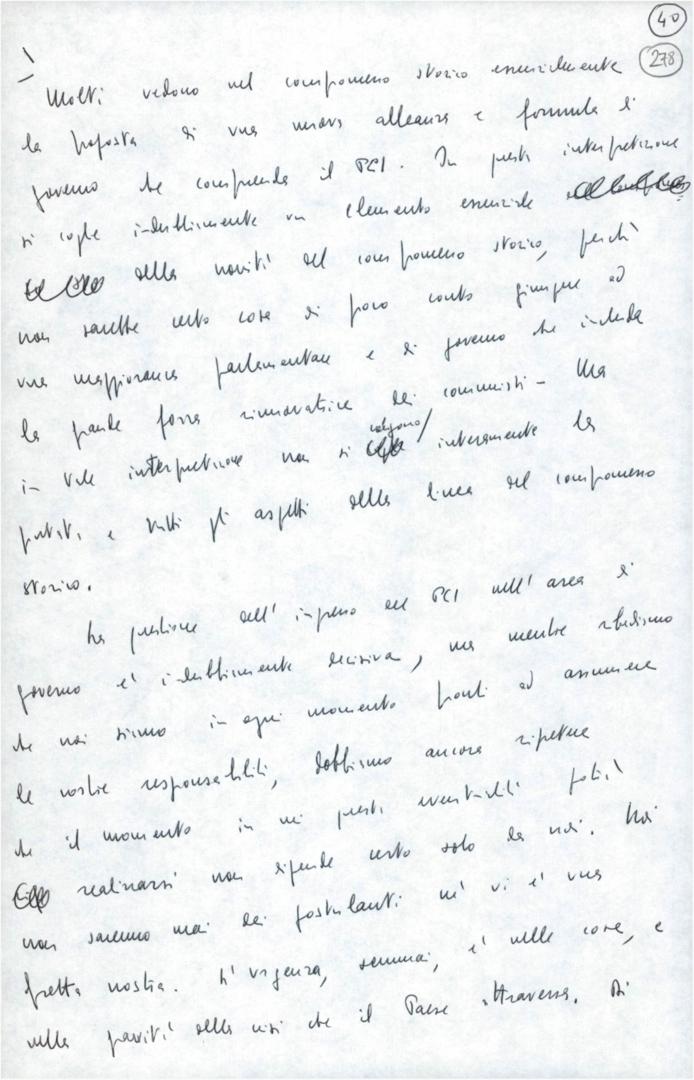 40
278
Molti vedono nel compromesso storico essenzialmente
la proposta di una nuova alleanza e formula di
governo che comprenda il PCI. In questa interpretazione
si coglie indubbiamente un elemento essenziale
della novità del compromesso storico, perché
non sarebbe certo cosa di poco conto giungere ad
una maggioranza parlamentare e di governo che includa
la grande forza rinnovatrice dei comunisti - Ma
in tale interpretazione non si colgono interamente la
portata e tutti gli aspetti della linea del compromesso
storico.
La questione dell'ingresso del PCI nell'area di
governo è indubbiamente decisiva, ma mentre ribadiamo
che noi siamo in ogni momento pronti ad assumere
le nostre responsabilità, dobbiamo ancora ripetere
che il momento in cui questa eventualità potrà
realizzarsi non dipende certo solo da noi. Noi
non saremo mai dei postulanti né vi è una
fretta nostra. L'urgenza, semmai, è nelle cose, e
nella gravità della crisi che il Paese attraversa. Di